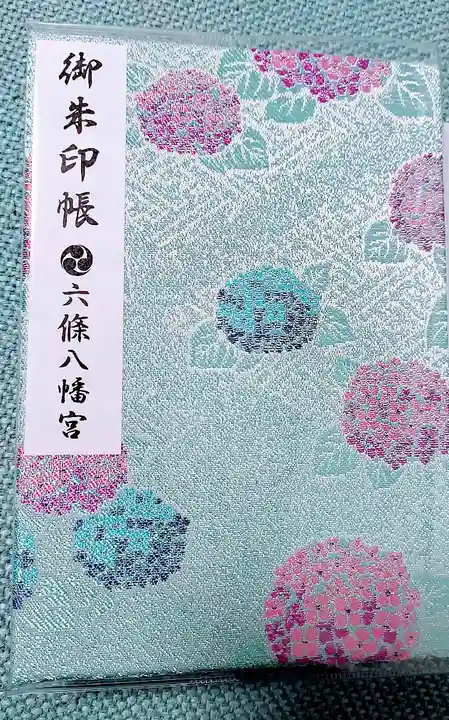 御朱印帳 六條八幡宮